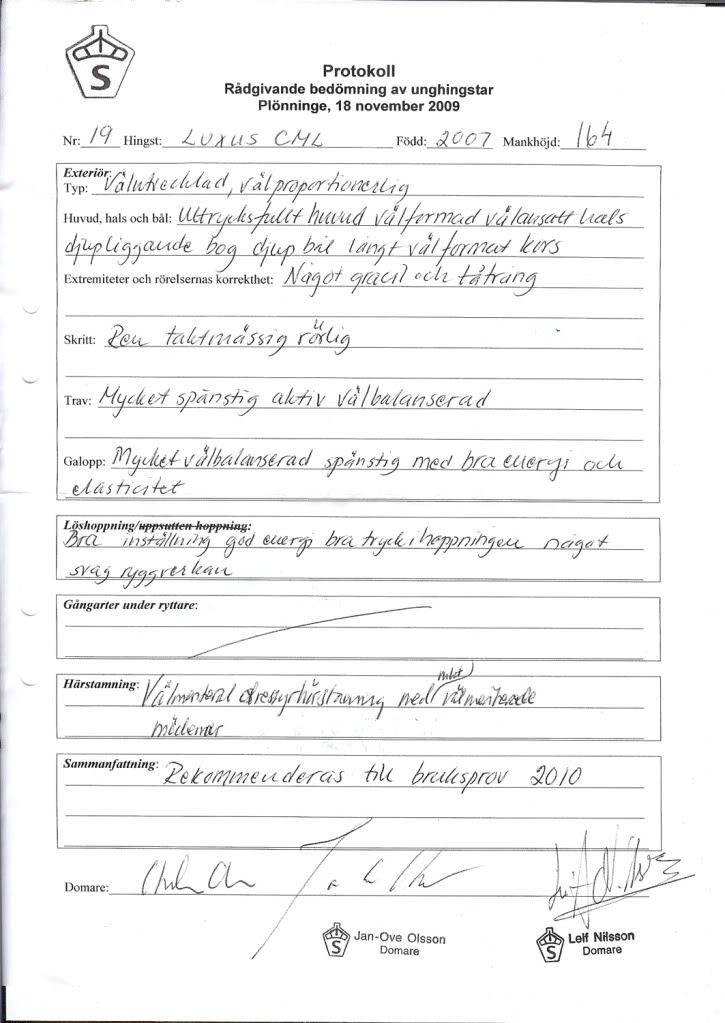 S
Protokoll
Rådgivande bedömning av unghingstar
Plönninge, 18 november 2009
Nr: 19 Hingst: LUXUS CML Född: 2007 Mankhöjd: 164
Exteriör:
Typ: Välutvecklad, välproportionerlig
Huvud, hals och bål: Uttrycksfullt huvud välformad välansatt hals
djupliggande bog djup bål långt välformat kors
Extremiteter och rörelsernas korrekthet: Något gracil och tåtrång
Skritt: Ren taktmässig rörlig
Trav: Mycket spänstig aktiv välbalanserad
Galopp: Mycket välbalanserad spänstig med bra energi och
elasticitet
Löshoppning/uppsutten hoppning:
Bra inställning god energi bra tryck i hoppningen något
svag ryggverkan
Gångarter under ryttare:
Härstamning: Välmeriterad dressyrhärstamning med mkt välmeriterade
mödernär
Sammanfattning: Rekommenderas till bruksprov 2010
Domare:
S Jan-Ove Olsson
Domare
S Leif Nilsson
Domare